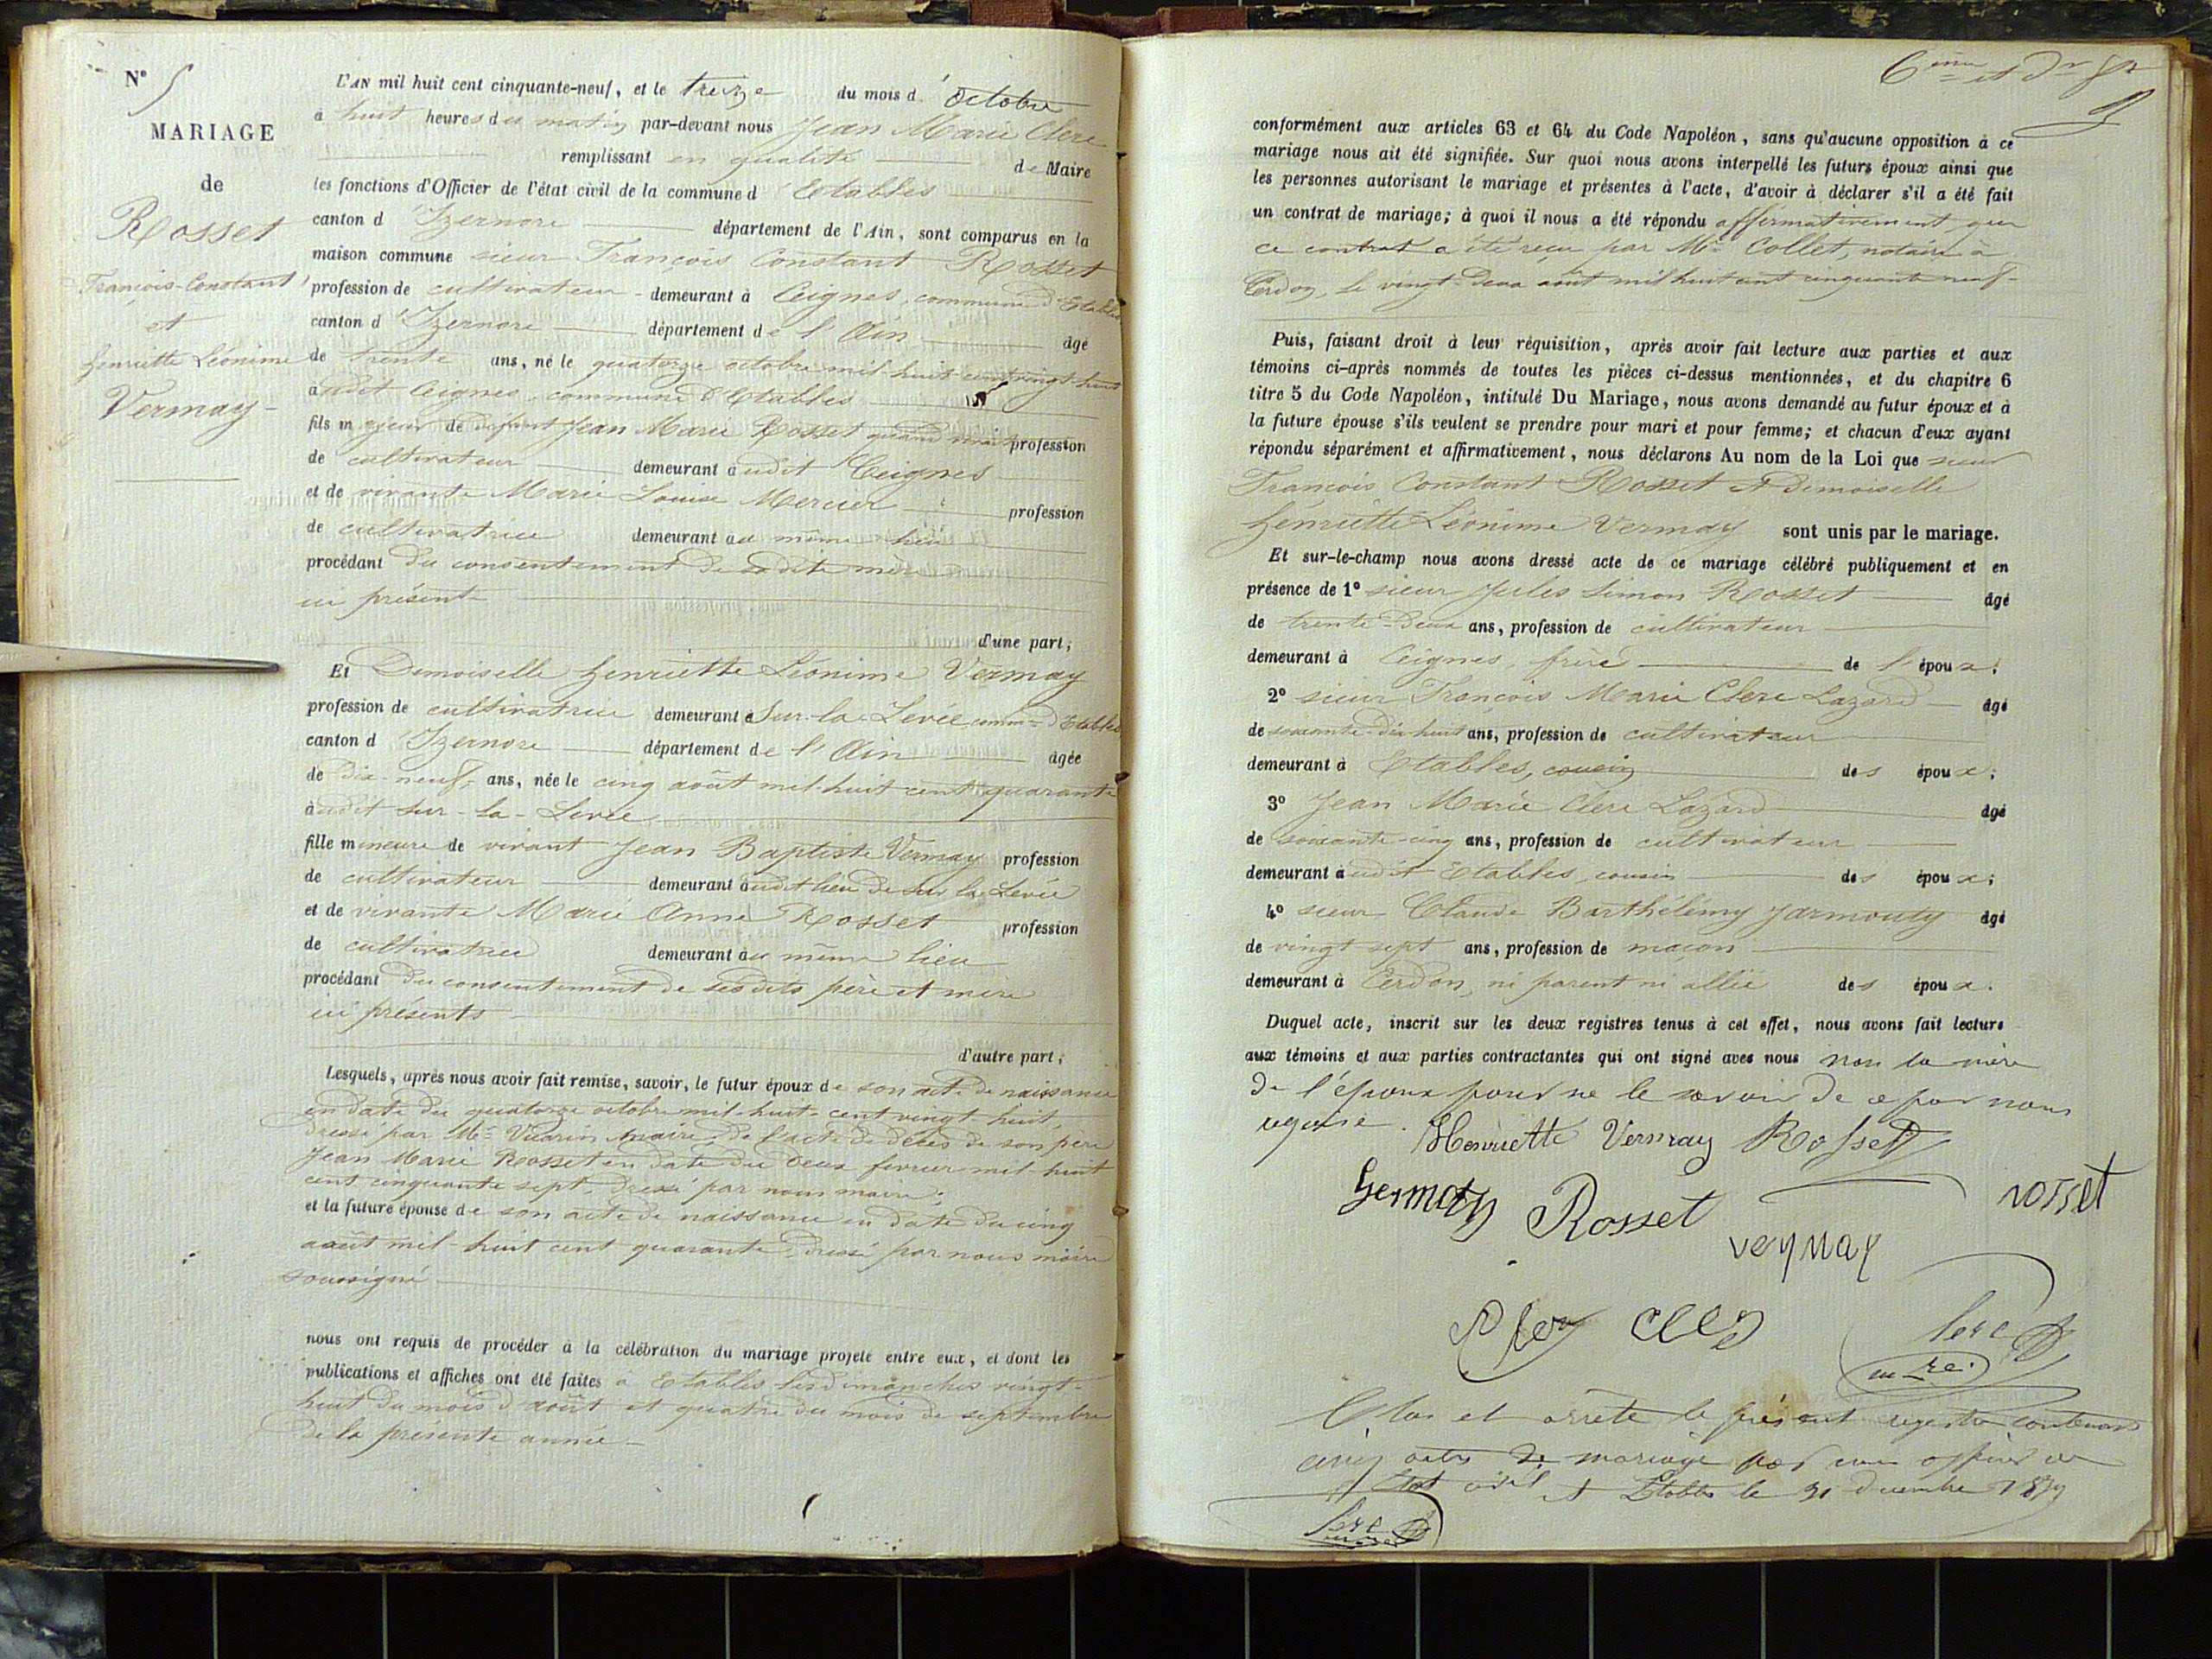 N° 5
MARIAGE
de
Rosset
François-Constant
et
henriette Léonime
Vermay
L'AN mil huit cent cinquante-neuf, et le treize du mois d'Octobre
à huit heures du matin par-devant nous Jean Marie Clerc
remplissant en qualité de Maire
les fonctions d'Officier de l'état civil de la commune d'Etables
canton d'Izernore département de l'Ain, sont comparus en la
maison commune sieur François Constant Rosset
profession de cultivateur demeurant à Ceignes, commune d'Etables
canton d'Izernore département de l'Ain âgé
de trente ans, né le quatorze octobre mil huit cent vingt-huit
audit Ceignes, commune d'Etables
fils majeur de défunt Jean Marie Rosset quand vivait profession
de cultivateur demeurant audit Ceignes
et de vivante Marie Louise Mercier profession
de cultivatrice demeurant au même lieu
procédant du consentement de sa dite mère
ici présente
d'une part;
Et Demoiselle henriette Léonime Vermay
profession de cultivatrice demeurant à Sur-la-Levée comm=d'Etables
canton d'Izernore département de l'Ain âgée
de dix-neuf ans, née le cinq août mil-huit-cent quarante
audit Sur-la-Levée
fille mineure de vivant Jean Baptiste Vermay profession
de cultivateur demeurant audit lieu de Sur la Levée
et de vivante Marie Anne Rosset profession
de cultivatrice demeurant au même lieu
procédant du consentement de ses dits père et mère
ici présents
d'autre part;
Lesquels, après nous avoir fait remise, savoir, le futur époux de son acte de naissance
en date du quatorze octobre mil-huit-cent vingt-huit,
dressé par Mr Vuarin maire, de l'acte de décès de son père
Jean Marie Rosset en date du deux fevrier mil-huit
cent cinquante sept, dressé par nous maire;
et la future épouse de son acte de naissance en date du cinq
août mil-huit cent quarante, dressé par nous maire
soussigné
nous ont requis de procéder à la célébration du mariage projeté entre eux, et dont les
publications et affiches ont été faites à Etables les dimanches vingt-
huit du mois d'août et quatre du mois de septembre
de la présente année
6ème et dr
conformément aux articles 63 et 64 du Code Napoléon, sans qu'aucune opposition à ce
mariage nous ait été signifiée. Sur quoi nous avons interpellé les futurs époux ainsi que
les personnes autorisant le mariage et présentes à l'acte, d'avoir à déclarer s'il a été fait
un contrat de mariage; à quoi il nous a été répondu affirmativement que
ce contrat a été reçu par Me Collet, notaire à
Cerdon, le vingt-deux août mil huit cent cinquante neuf-
Puis, faisant droit à leur réquisition, après avoir fait lecture aux parties et aux
témoins ci-après nommés de toutes les pièces ci-dessus mentionnées, et du chapitre 6
titre 5 du Code Napoléon, intitulé Du Mariage, nous avons demandé au futur époux et à
la future épouse s'ils veulent se prendre pour mari et pour femme; et chacun d'eux ayant
répondu séparément et affirmativement, nous déclarons Au nom de la Loi que sieur
François Constant Rosset et demoiselle
henriette Léonime Vermay sont unis par le mariage.
Et sur-le-champ nous avons dressé acte de ce mariage célébré publiquement et en
présence de 1° sieur Jules Simon Rosset âgé
de trente-deux ans, profession de cultivateur
demeurant à Ceignes, frère de l'époux;
2° sieur François Marie Clerc Lazard âgé
de soixante-dix-huit ans, profession de cultivateur
demeurant à Etables, cousin des époux;
3° Jean Marie Clerc Lazard âgé
de soixante-cinq ans, profession de cultivateur
demeurant audit Etables, cousin des époux;
4° sieur Claude Barthélemy Jarmouty âgé
de vingt sept ans, profession de maçon
demeurant à Cerdon, ni parent ni allié des époux.
Duquel acte, inscrit sur les deux registres tenus à cet effet, nous avons fait lecture
aux témoins et aux parties contractantes qui ont signé avec nous non la mère
de l'époux pour ne le savoir de ce par nous
requise.
Henriette Vermay Rosset
Germoty Rosset rosset
vermay
Clerc
Clerc
mre
Clos et arrêté le présent registre contenant
cinq actes de mariage par nous officier de
l'Etat civil à Etables le 31 decembre 1859
Clerc